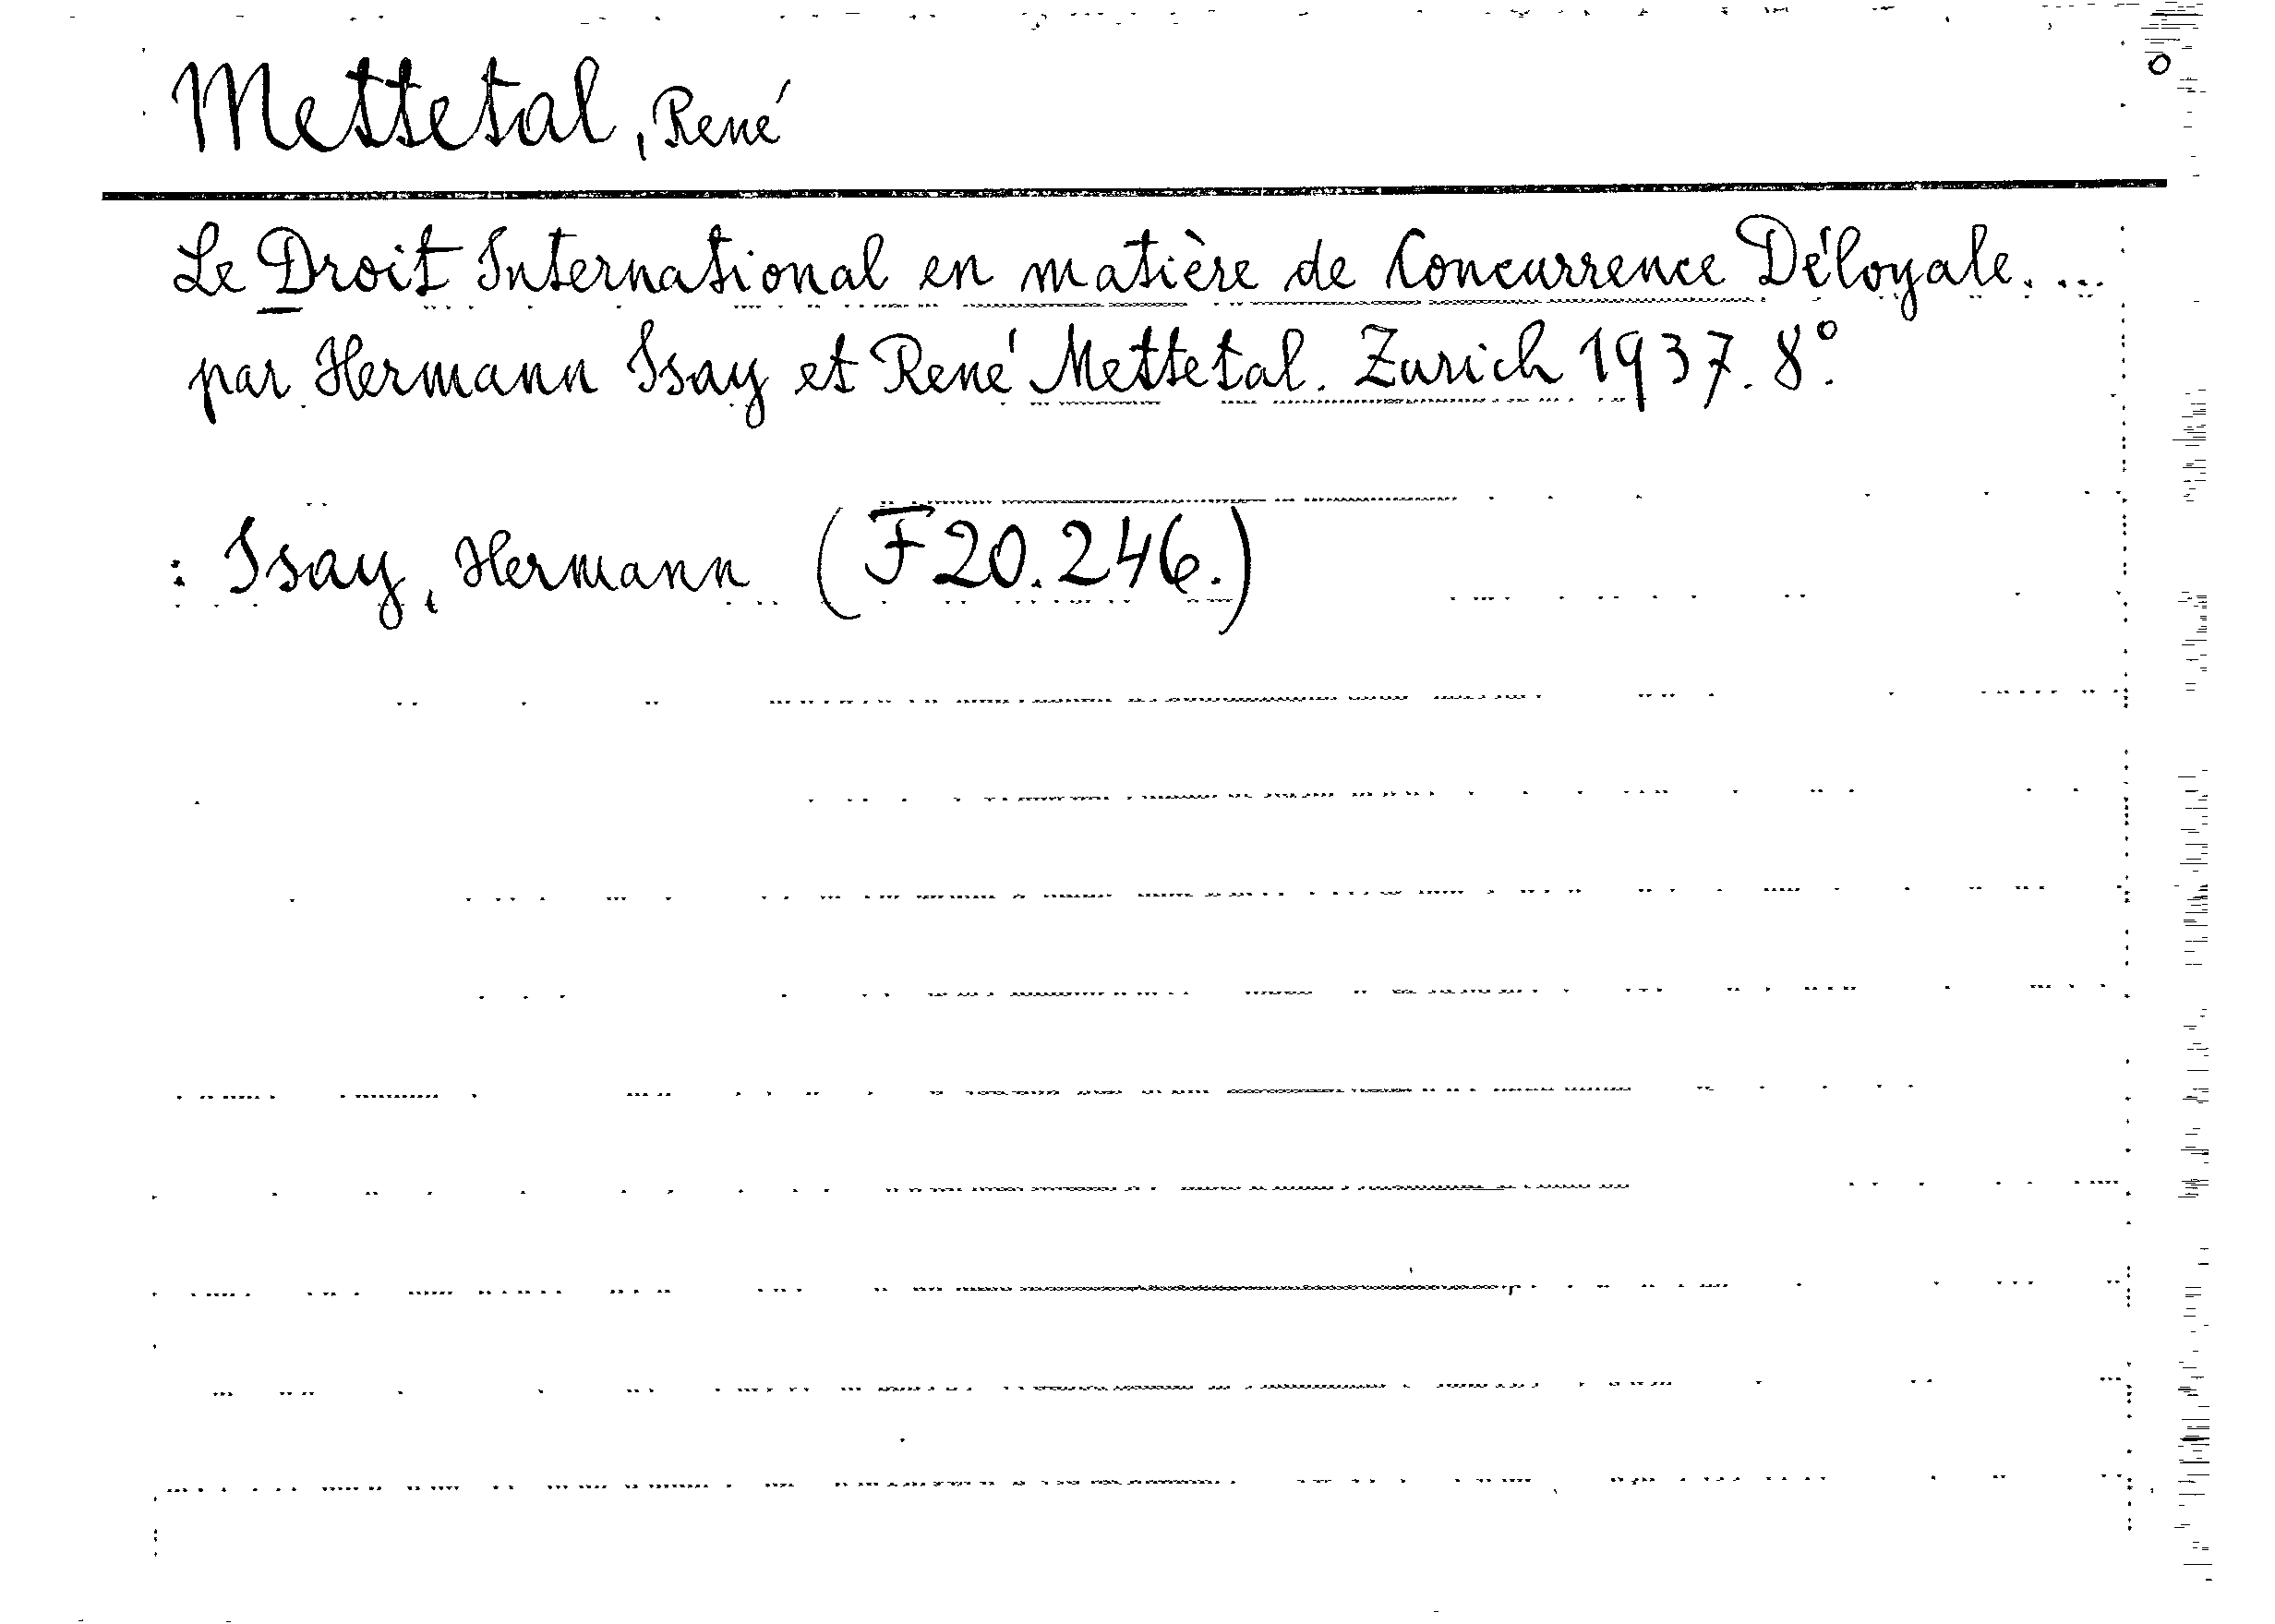 Mettetal, René
Le Droit International en matière de Concurrence Déloyale....
par Hermann Isay et René Mettetal. Zurich 1937. 8°.
: Isay, Hermann (F 20.246.)